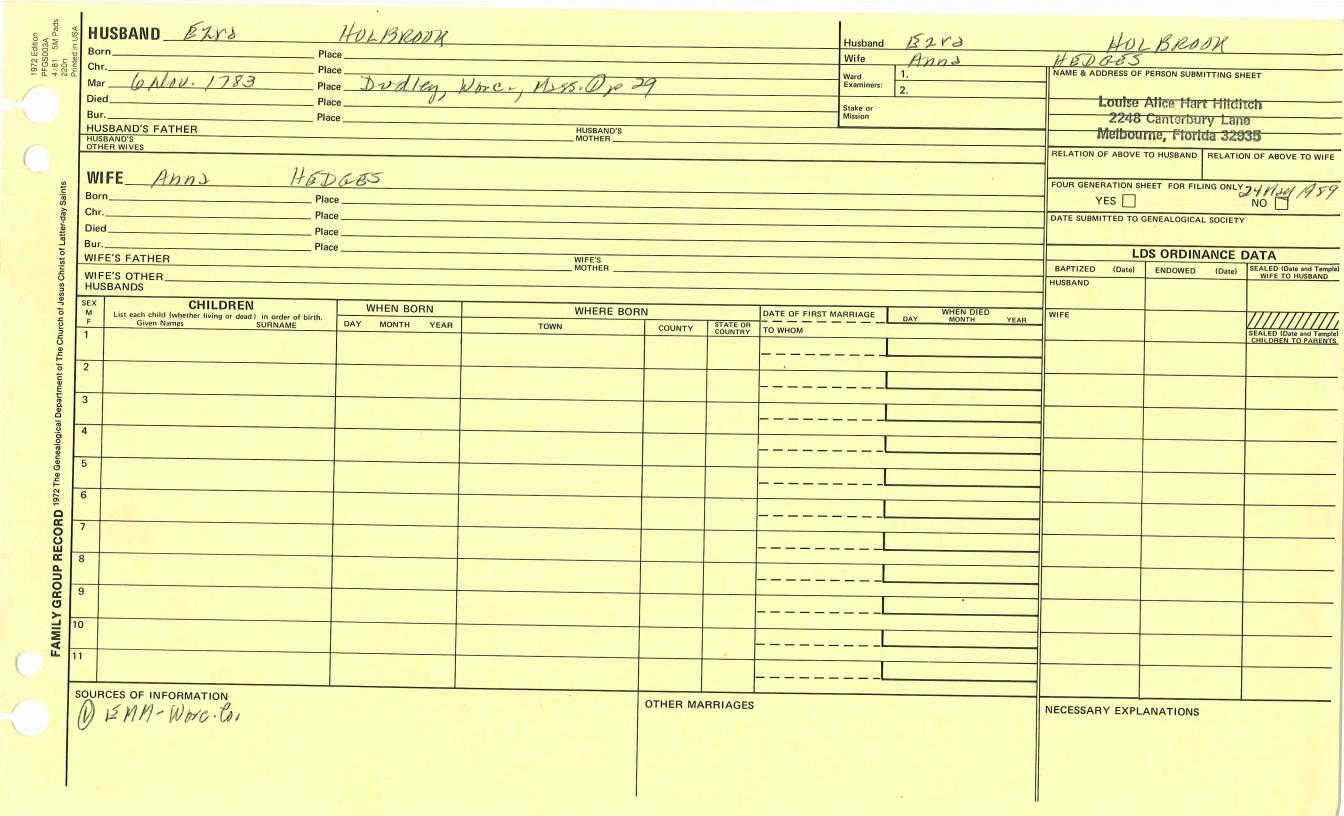 1972 Edition
PFGS003A
4/81 5M Pads
220n
Printed in USA
FAMILY GROUP RECORD 1972 The Genealogical Department of The Church of Jesus Christ of Latter-day Saints
HUSBAND Ezra HOLBROOK
Born Place
Chr. Place
Mar 6 Nov. 1783 Place Dudley, Worc., Mass. p 29
Died Place
Bur. Place
HUSBAND'S FATHER HUSBAND'S MOTHER
HUSBAND'S OTHER WIVES
WIFE Anna HEDGES
Born Place
Chr. Place
Died Place
Bur. Place
WIFE'S FATHER WIFE'S MOTHER
WIFE'S OTHER HUSBANDS
Husband Ezra HOLBROOK
Wife Anna HEDGES
Ward Examiners: 1.
2.
Stake or Mission
NAME & ADDRESS OF PERSON SUBMITTING SHEET
Louise Alice Hart Hilditch
2248 Canterbury Lane
Melbourne, Florida 32935
RELATION OF ABOVE TO HUSBAND RELATION OF ABOVE TO WIFE
FOUR GENERATION SHEET FOR FILING ONLY 24 May 1989
YES NO
DATE SUBMITTED TO GENEALOGICAL SOCIETY
LDS ORDINANCE DATA
BAPTIZED (Date) ENDOWED (Date) SEALED (Date and Temple) WIFE TO HUSBAND
HUSBAND
WIFE
SEALED (Date and Temple) CHILDREN TO PARENTS
SEX M F
CHILDREN
List each child (whether living or dead) in order of birth.
Given Names SURNAME
WHEN BORN
DAY MONTH YEAR
WHERE BORN
TOWN COUNTY STATE OR COUNTRY
DATE OF FIRST MARRIAGE
TO WHOM
WHEN DIED
DAY MONTH YEAR
1
2
3
4
5
6
7
8
9
10
11
SOURCES OF INFORMATION
① EMM-Worc. Co.
OTHER MARRIAGES
NECESSARY EXPLANATIONS